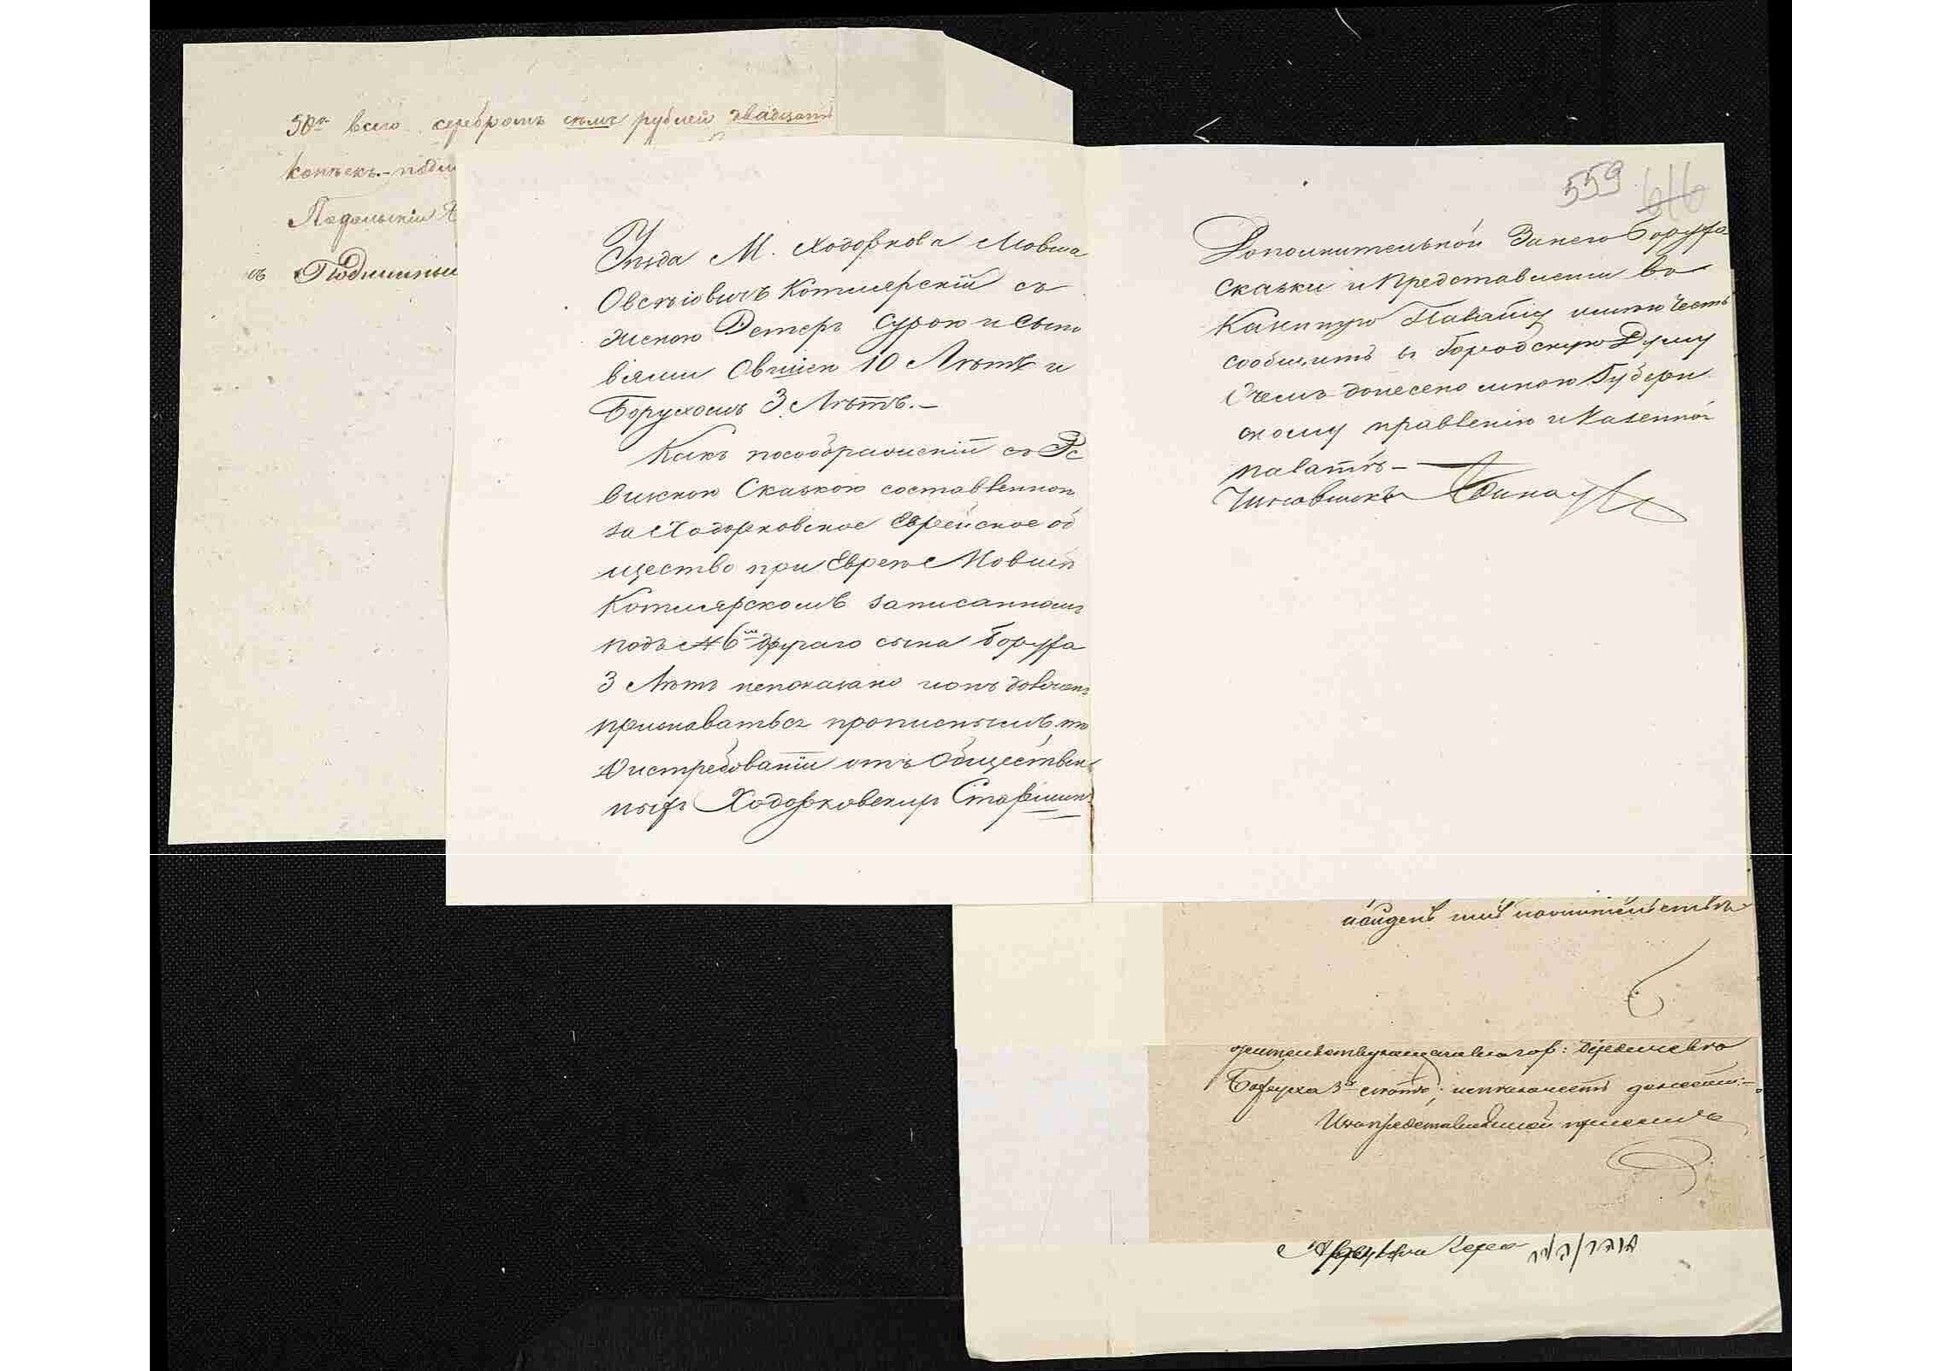 50 к всего серебромъ семь рублей двадцать
копѣекъ.-
Подольскій
съ Подлиннымъ
Уѣзда М. Ходоркова Мовша
Овсѣіовичъ Котлярскій съ
женою Эстеръ Сурою и сыно
вьями Овшіем 10 Лѣтъ и
Борухомъ 3 Лѣтъ.-
Какъ посоображеніи съ Ре
визкою Сказкою составленною
за Ходорковское Еврейское об
щество при Евреѣ Мовшѣ
Котлярскомъ записанномъ
подъ № 6м другаго сына Боруха
3 Лѣтъ непоказано и онъ долженъ
признаватьса прописнымъ, то
Оистребованіи отъ Обществен
ныхъ Ходорковскихъ Старшинъ
559 616
Дополнительной Занего Боруха
Сказки и Представлении во
Казенную Палату имѣю Честь
сообщить въ Городскую Думу
Очемъ донесено мною Губерн
скому правленію и Казенной
палатѣ-
Чиновникъ
Боруха 3х лѣтъ,